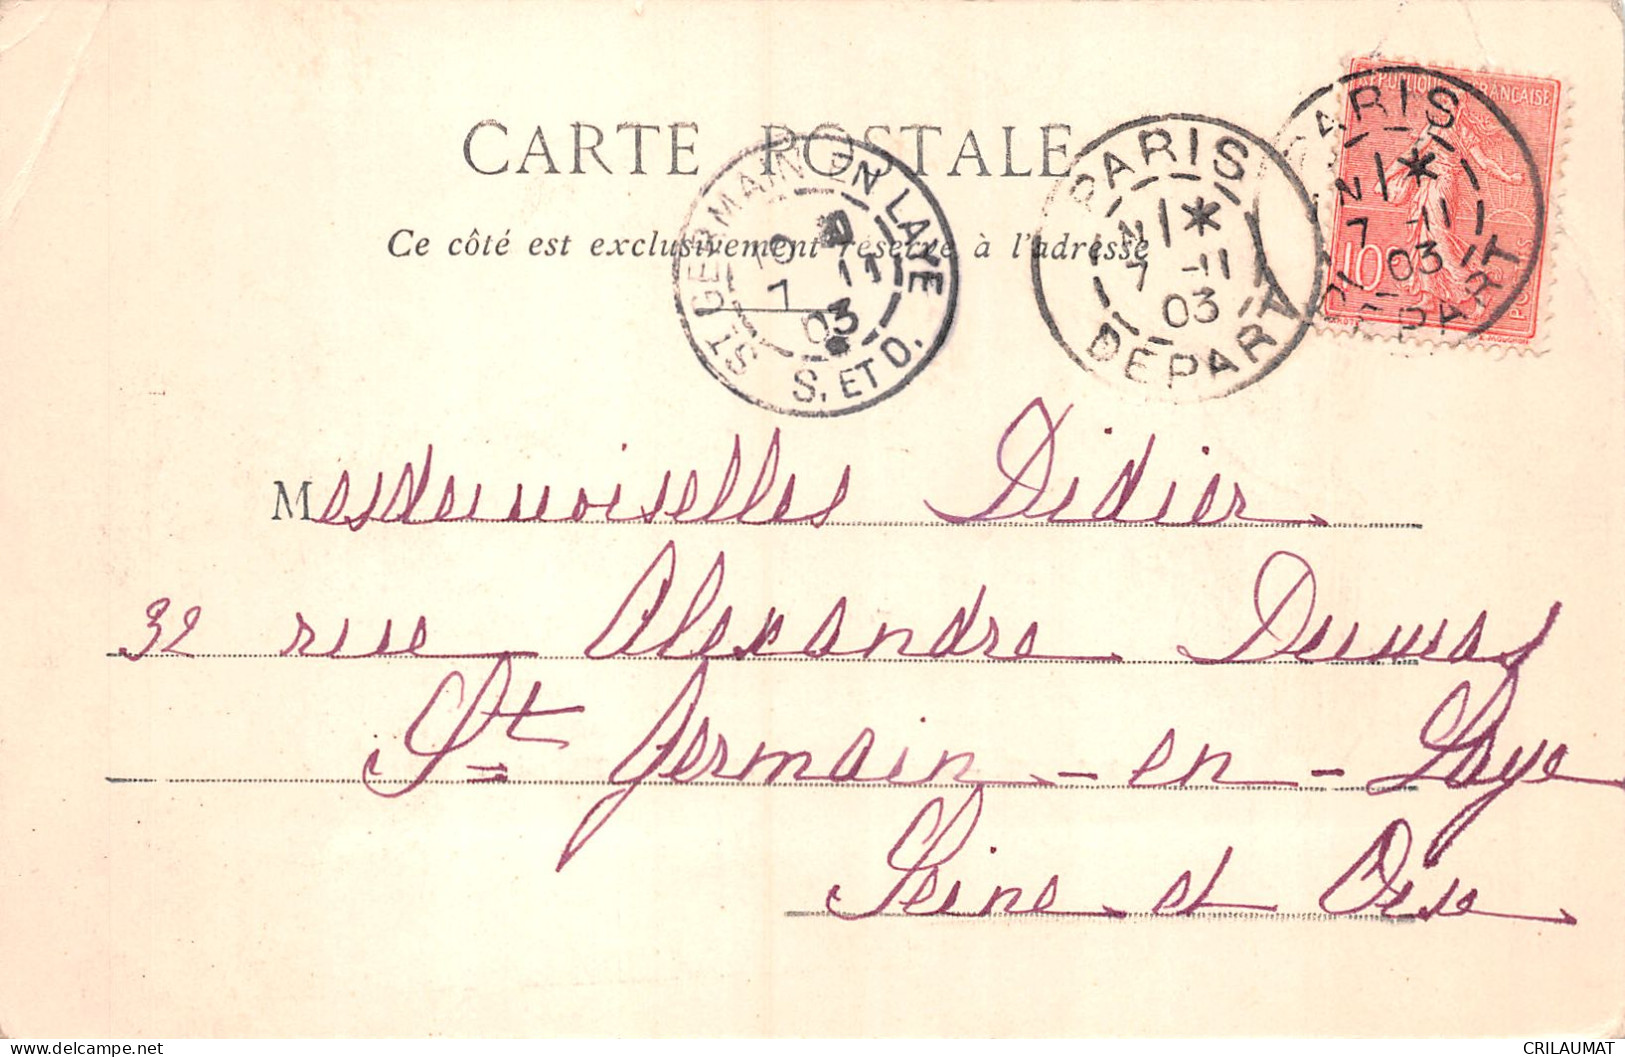 RÉPUBLIQUE FRANÇAISE
10
POSTES
CARTE POSTALE
PARIS
1 *
7 -11
03
DEPART
PARIS
1 *
7 -11
03
DEPART
ST GERMAIN EN LAYE
10
7 11
03
S. ET O.
Ce côté est exclusivement réservé à l'adresse
Mesdemoiselles Didier
32 rue Alexandre Dumas
St Germain - en - Laye
Seine et Oise
www.delcampe.net
CRILAUMAT